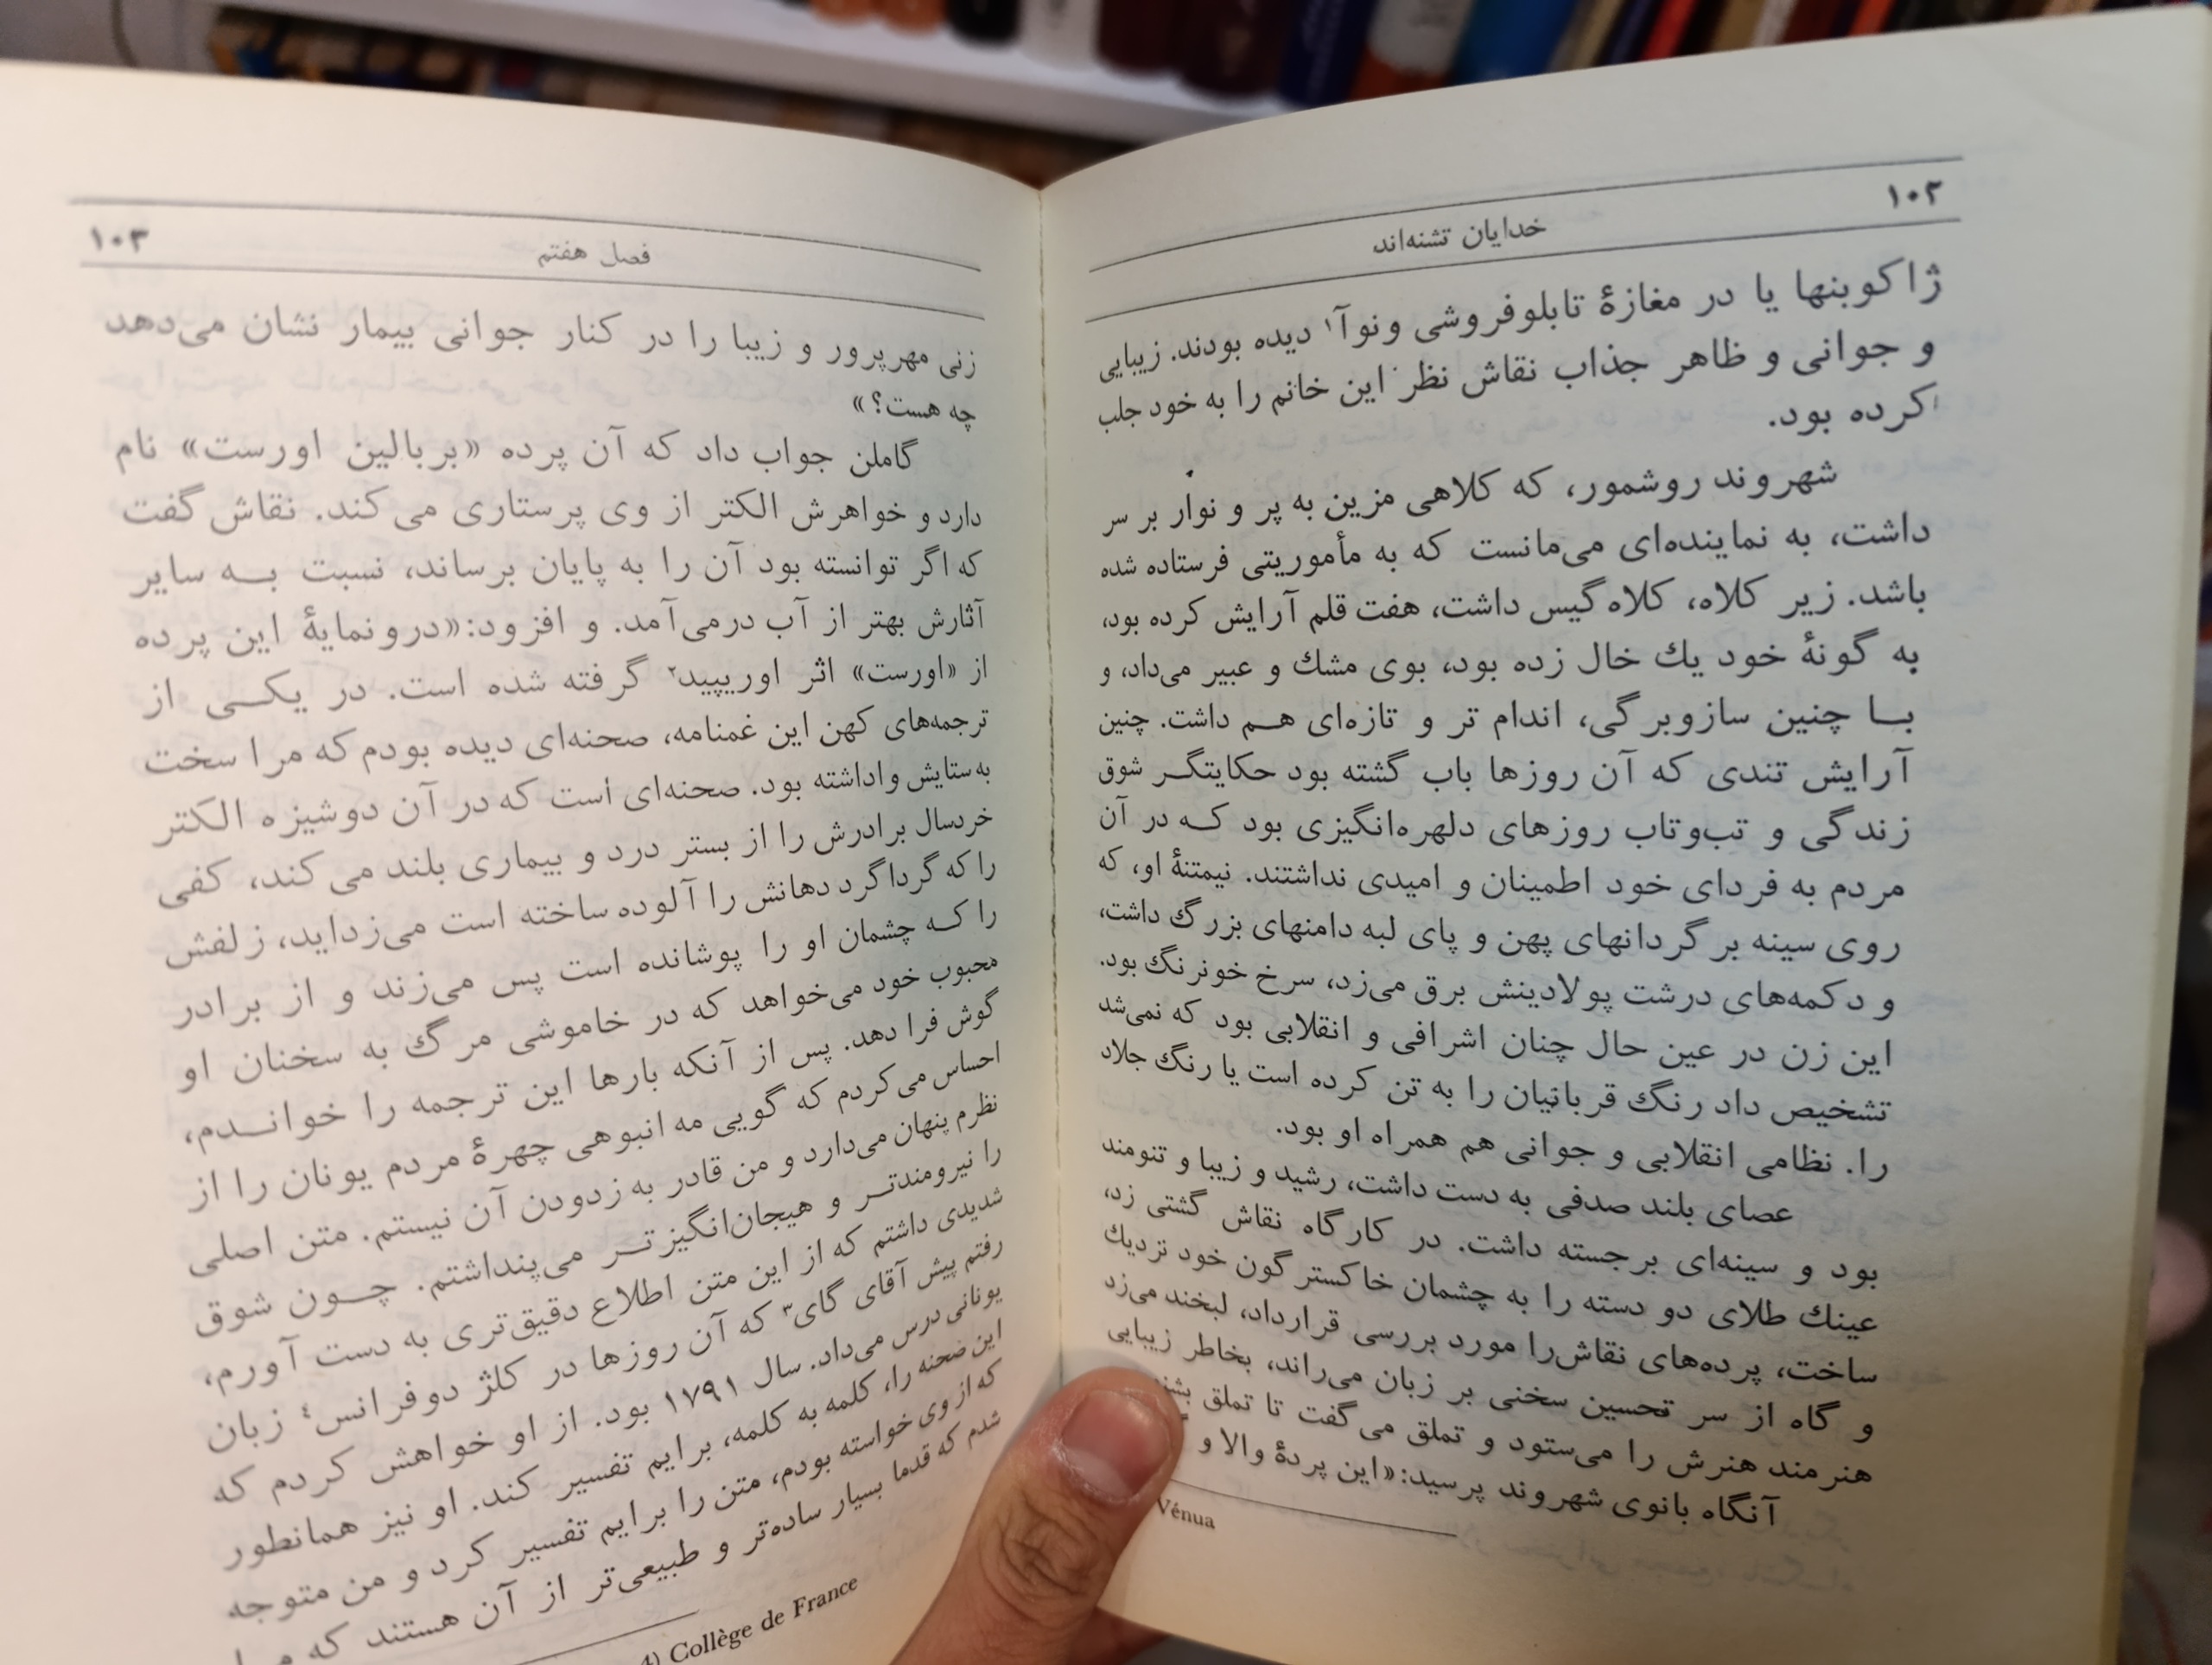 ۱۰۲
خدایان تشنه‌اند
ژاکوبنها یا در مغازهٔ تابلوفروشی ونوآ۱ دیده بودند. زیبایی
و جوانی و ظاهر جذاب نقاش نظر این خانم را به خود جلب
کرده بود.
شهروند روشمور، که کلاهی مزین به پر و نوار بر سر
داشت، به نماینده‌ای می‌مانست که به مأموریتی فرستاده شده
باشد. زیر کلاه، کلاه گیس داشت، هفت قلم آرایش کرده بود،
به گونهٔ خود یك خال زده بود، بوی مشك و عبیر می‌داد، و
بــا چنین سازوبرگی، اندام تر و تازه‌ای هــم داشت. چنین
آرایش تندی که آن روزها باب گشته بود حکایتگــر شوق
زندگی و تب‌وتاب روزهای دلهره‌انگیزی بود کــه در آن
مردم به فردای خود اطمینان و امیدی نداشتند. نیمتنهٔ او، که
روی سینه برگردانهای پهن و پای لبه دامنهای بزرگ داشت،
و دکمه‌های درشت پولادینش برق می‌زد، سرخ خونرنگ بود.
این زن در عین حال چنان اشرافی و انقلابی بود که نمی‌شد
تشخیص داد رنگ قربانیان را به تن کرده است یا رنگ جلاد
را. نظامی انقلابی و جوانی هم همراه او بود.
عصای بلند صدفی به دست داشت، رشید و زیبا و تنومند
بود و سینه‌ای برجسته داشت. در کارگاه نقاش گشتی زد،
عینك طلای دو دسته را به چشمان خاکسترگون خود نزدیك
ساخت، پرده‌های نقاش‌را مورد بررسی قرارداد، لبخند می‌زد
و گاه از سر تحسین سخنی بر زبان می‌راند، بخاطر زیبایی
هنرمند هنرش را می‌ستود و تملق می‌گفت تا تملق
آنگاه بانوی شهروند پرسید: «این پردهٔ والا و
Vénua
۱۰۳
فصل هفتم
زنی مهرپرور و زیبا را در کنار جوانی بیمار نشان می‌دهد
چه هست؟»
گاملن جواب داد که آن پرده «بربالین اورست» نام
دارد و خواهرش الکتر از وی پرستاری می‌کند. نقاش گفت
که اگر توانسته بود آن را به پایان برساند، نسبت بــه سایر
آثارش بهتر از آب درمی‌آمد. و افزود: «درونمایهٔ این پرده
از «اورست» اثر اوریپید۲ گرفته شده است. در یکــی از
ترجمه‌های کهن این غمنامه، صحنه‌ای دیده بودم که مرا سخت
به ستایش واداشته بود. صحنه‌ای است که در آن دوشیزه الکتر
خردسال برادرش را از بستر درد و بیماری بلند می‌کند، کفی
را که گرداگرد دهانش را آلوده ساخته است می‌زداید، زلفش
را کــه چشمان او را پوشانده است پس می‌زند و از برادر
محبوب خود می‌خواهد که در خاموشی مرگ به سخنان او
گوش فرا دهد. پس از آنکه بارها این ترجمه را خوانــدم،
احساس می‌کردم که گویی مه انبوهی چهرهٔ مردم یونان را از
نظرم پنهان می‌دارد و من قادر به زدودن آن نیستم. متن اصلی
را نیرومندتــر و هیجان‌انگیزتــر می‌پنداشتم. چــون شوق
شدیدی داشتم که از این متن اطلاع دقیق‌تری به دست آورم،
رفتم پیش آقای گای۳ که آن روزها در کلژ دوفرانس۴ زبان
یونانی درس می‌داد. سال ۱۷۹۱ بود. از او خواهش کردم که
این صحنه را، کلمه به کلمه، برایم تفسیر کند. او نیز همانطور
که از وی خواسته بودم، متن را برایم تفسیر کرد و من متوجه
شدم که قدما بسیار ساده‌تر و طبیعی‌تر از آن هستند که
4) Collège de France